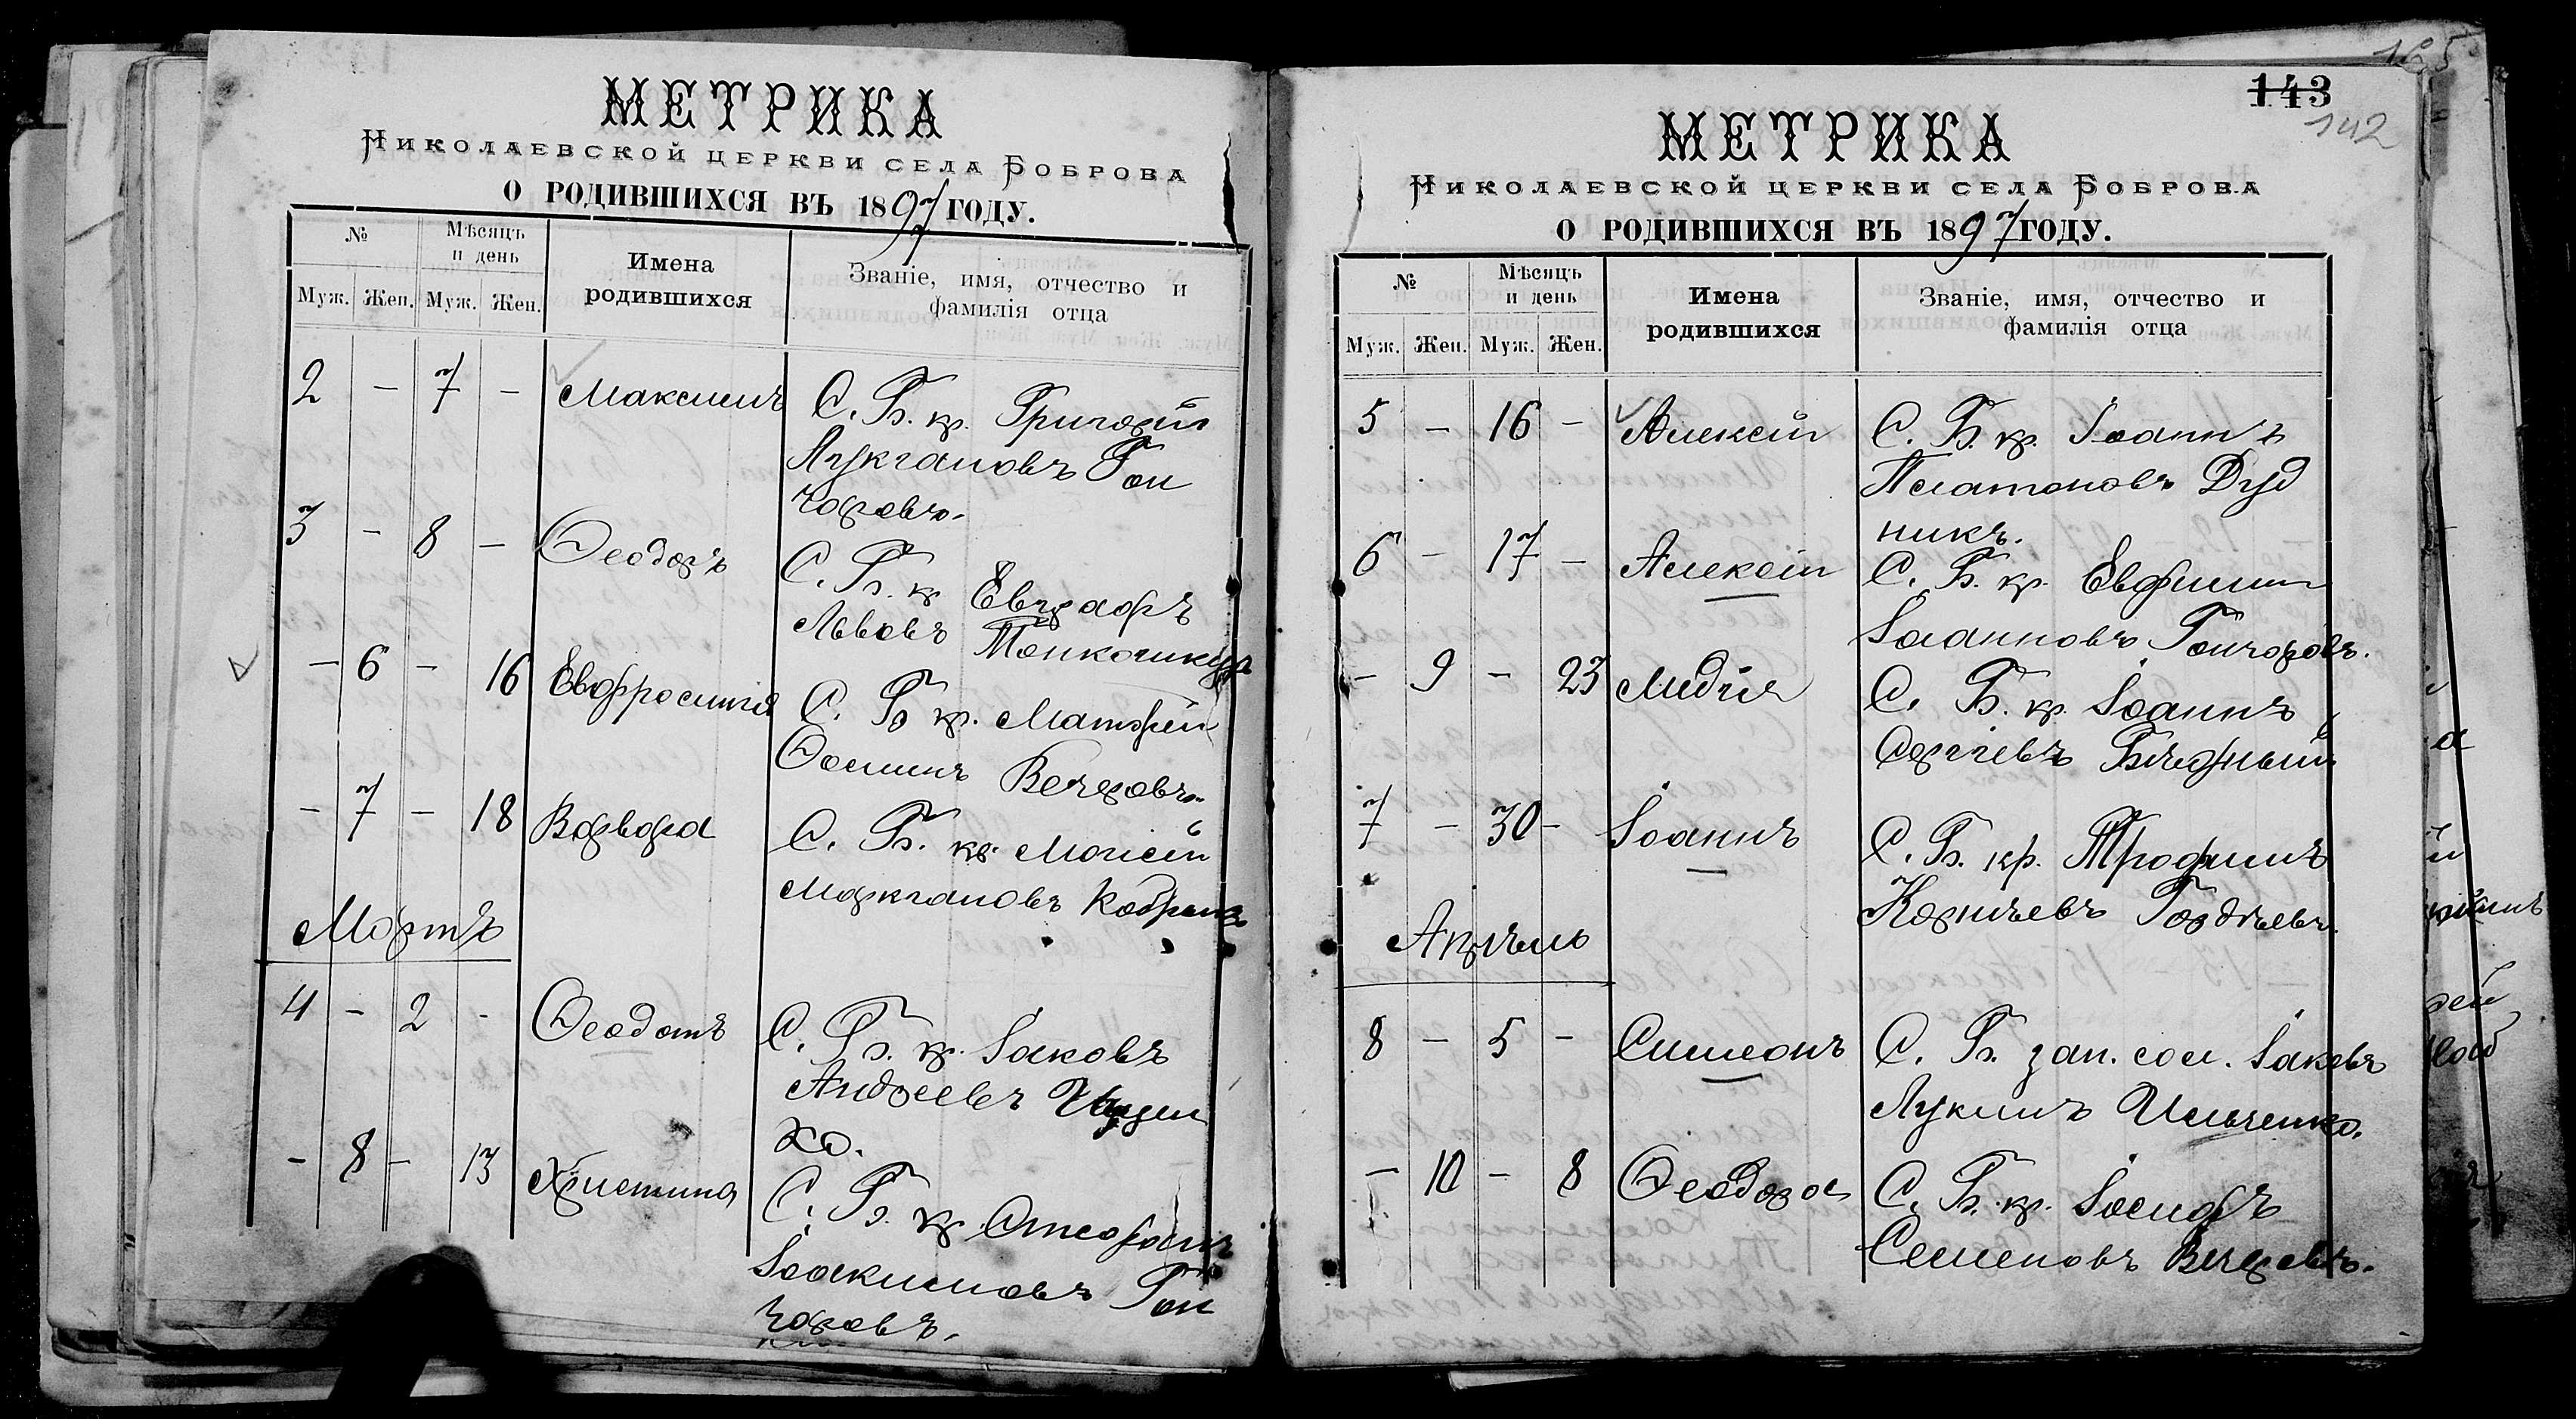 МЕТРИКА
Николаевской церкви села Боброва
О РОДИВШИХСЯ ВЪ 1897 ГОДУ.
№
Мѣсяцъ и день
Имена родившихся
Званіе, имя, отчество и фамилія отца
Муж. Жен. Муж. Жен.
2 – 7 – Максимъ С. Б. кр. Григорій
Лукіановъ Гон
чаровъ.
3 – 8 – Ѳеодоръ С. Б. кр Евграфъ
Львовъ
– 6 – 16 Евфросинія С. Б. кр. Матфій
Ѳоминъ Вечеровъ.
– 7 – 18 Варвара С. Б. кр. Моисей
Маркіановъ
Мартъ
4 – 2 - Ѳеодотъ С. Б. кр. Іаковъ
Андреевъ
ко.
– 8 – 13 Христина С. Б. кр Стефанъ
Іоакимовъ Гон
чаровъ.
165
143
142
МЕТРИКА
Николаевской церкви села Боброва
О РОДИВШИХСЯ ВЪ 1897 ГОДУ.
№
Мѣсяцъ и день
Имена родившихся
Званіе, имя, отчество и фамилія отца
Муж. Жен. Муж. Жен.
5 – 16 – Алексій С. Б. кр. Іоаннъ
Платоновъ Дуд
никъ.
6 – 17 – Алексій С. Б. кр. Евфимій
Іоанновъ Гончаровъ.
– 9 – 23 Лидія С. Б. кр. Іоаннъ
Сергіевъ
7 – 30 – Іоаннъ С. Б. кр. Трофимъ
Корнѣевъ Гордѣевъ.
Апрѣль
8 – 5 – Симеонъ С. Б. зап. сол. Іаковъ
Лукинъ Ильченко.
– 10 – 8 Ѳеодора С. Б. кр. Іосифъ
Семеновъ Вечеровъ.